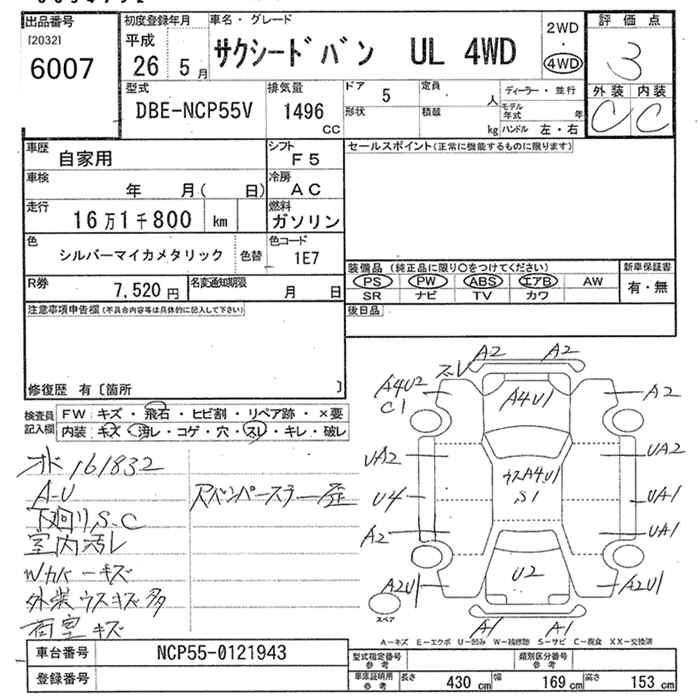 出品番号
[2032]
6007
初度登録年月
平成
26年 5月
車名・グレード
サクシードバン UL 4WD
2WD
・
4WD
評価点
3
外装 内装
C C
型式
DBE-NCP55V
排気量
1496
CC
ドア
5
形状
定員
人
積載
kg
ディーラー・並行
モデル年式 年
ハンドル 左・右
車歴
自家用
シフト
F5
セールスポイント(正常に機能するものに限ります)
車検
年 月( 日)
冷房
AC
走行
16万1千800 km
燃料
ガソリン
色
シルバーマイカメタリック
色替
色コード
1E7
装備品 (純正品に限り○をつけてください)
新車保証書
PS PW ABS エアB AW
有・無
SR ナビ TV カワ
R券
7,520円
名変通知期限
月 日
後日品
注意事項申告欄(不具合内容等は具体的に記入して下さい)
修復歴 有〔箇所 〕
検査員
記入欄
FW キズ・飛石・ヒビ割・リペア跡・×要
内装 キズ・汚レ・コゲ・穴・スレ・キレ・破レ
161832
A-U
下廻りS.C
室内汚レ
Wカバーキズ
外装ウスキズ多
荷室キズ
A2 A2
スレ
A4U2
C1
A4U1
A2
UA2
UA2
ウスA4U1
S1
U4
UA1
A2
UA1
A2U1
U2
A2U1
スペア
A1 A1
A－キズ E－エクボ U－凹み W－補修跡 S－サビ C－腐食 XX－交換済
車台番号
NCP55-0121943
型式指定番号
参考
類別区分番号
参考
登録番号
車庫証明用
参考
長さ 430 cm 幅 169 cm 高さ 153 cm